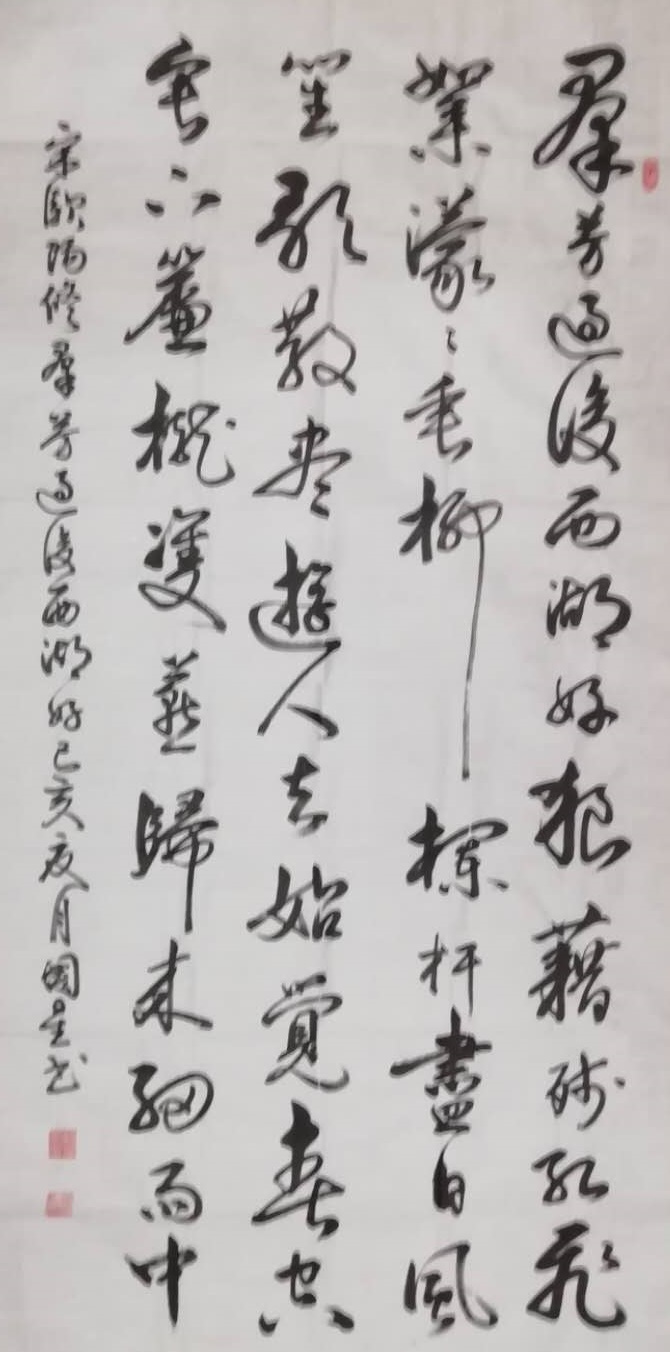 羣芳過後西湖好狼藉残紅飛
絮濛々垂柳欄杆盡日風
笙歌散盡遊人去始覺春空
垂下簾櫳雙燕歸來細雨中
宋歐陽修羣芳過後西湖好己亥夏月國书